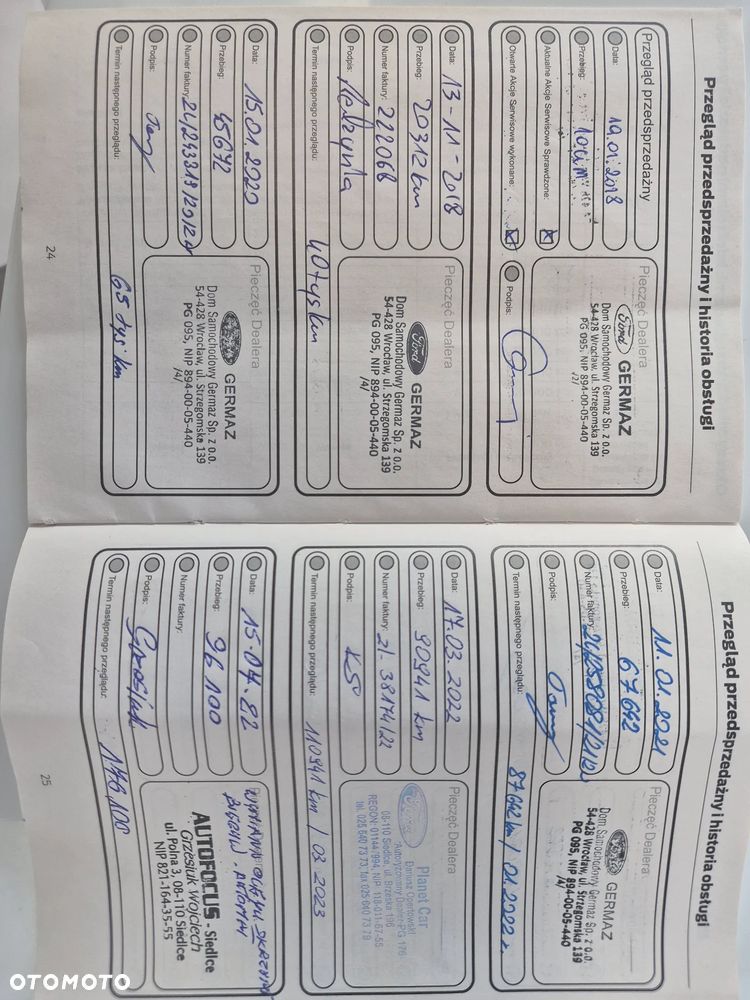 Przegląd przedsprzedażny i historia obsługi
Przegląd przedsprzedażny
Data: 19.01.2018
Przebieg: 10
Aktualne Akcje Serwisowe Sprawdzone:
Otwarte Akcje Serwisowe wykonane:
Podpis:
Pieczęć Dealera
Ford GERMAZ
Dom Samochodowy Germaz Sp. z o.o.
54-428 Wrocław, ul. Strzegomska 139
PG 095, NIP 894-00-05-440
/2/
Data: 13-11-2018
Przebieg: 20312 km
Numer faktury: 222068
Podpis:
Termin następnego przeglądu: 40 tys km
Pieczęć Dealera
Ford GERMAZ
Dom Samochodowy Germaz Sp. z o.o.
54-428 Wrocław, ul. Strzegomska 139
PG 095, NIP 894-00-05-440
/4/
Data: 15.01.2020
Przebieg: 45672
Numer faktury:
Podpis:
Termin następnego przeglądu: 65 tys. km
Pieczęć Dealera
Ford GERMAZ
Dom Samochodowy Germaz Sp. z o.o.
54-428 Wrocław, ul. Strzegomska 139
PG 095, NIP 894-00-05-440
/4/
24
Przegląd przedsprzedażny i historia obsługi
Data: 11.01.2021
Przebieg: 67642
Numer faktury:
Podpis:
Termin następnego przeglądu: 87642 km / 01.2022 r.
Pieczęć Dealera
Ford GERMAZ
Dom Samochodowy Germaz Sp. z o.o.
54-428 Wrocław, ul. Strzegomska 139
PG 095, NIP 894-00-05-440
/4/
Data: 17.03.2022
Przebieg: 90941 km
Numer faktury: 21-38174/22
Podpis:
Termin następnego przeglądu: 110941 km / 03 2023
Pieczęć Dealera
Planet Car
Dariusz Opantowski
Autoryzowany Dealer-PG 176
08-110 Siedlce, ul. Brzeska 196
Data: 15.04.22
Przebieg: 96 100
Numer faktury:
Podpis: Grzesiuk
Termin następnego przeglądu: 146 100
WYMIANA OLEJU SKRZYNI
BIEGÓW - AUTOMAT
AUTOFOCUS - Siedlce
Grzesiuk Wojciech
ul. Polna 3, 08-110 Siedlce
NIP 821-164-35-55
25
OTOMOTO